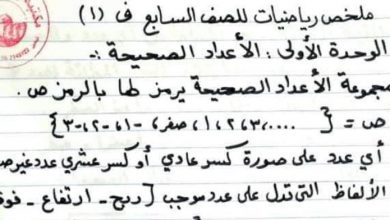 ملخص رياضيات للصف السابع ف (١)
الوحدة الأولى: الأعداد الصحيحة :-
مجموعة الأعداد الصحيحة يرمز لها بالرمز ص.
ص = { .... ،٣،٢،١، صفر، -١، -٢، -٣ }
أي عدد على صورة كسر عادي أو كسر عشري عدد غير
الألفاظ التي تدل على عدد موجب [ ربح - ارتفاع - فوق